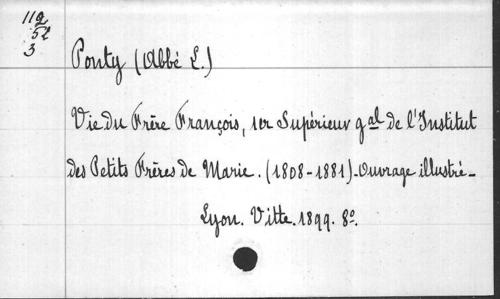 112
52
3
Ponty (Abbé L.)
Vie du Frère François, 1er Supérieur gal de l'Institut
des Petits Frères de Marie. (1808-1881). Ouvrage illustré_
Lyon. Vitte. 1899. 8°.